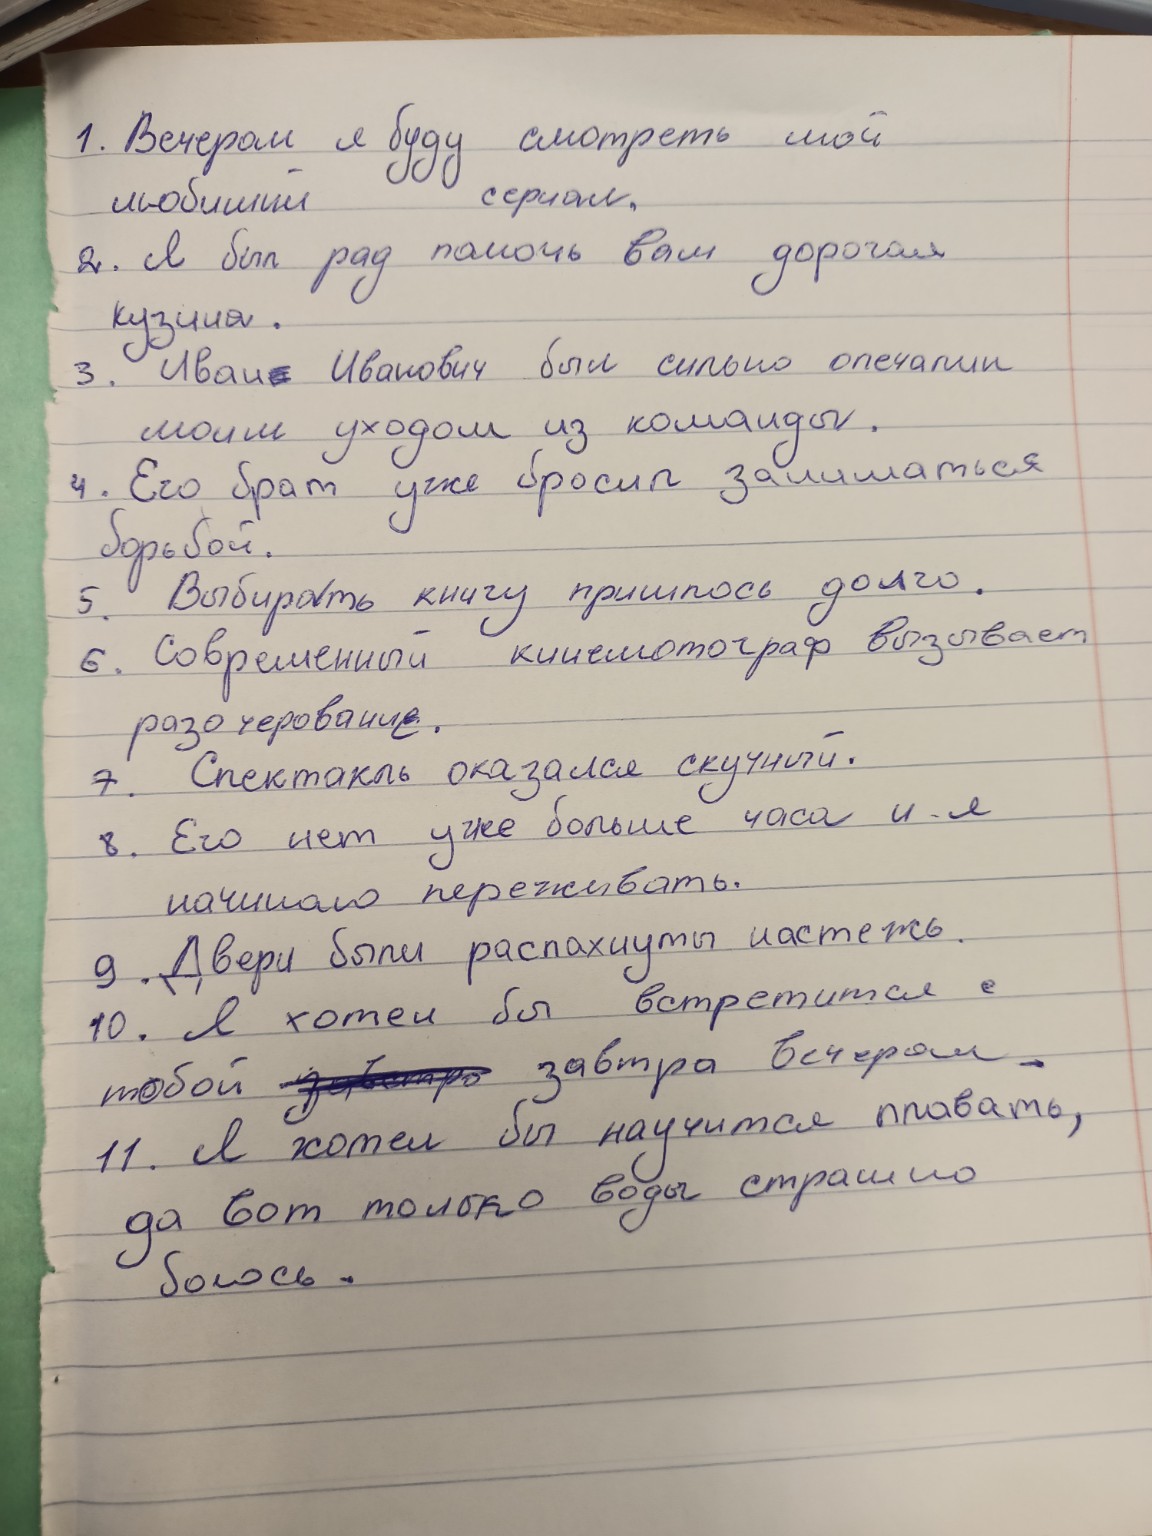 1. Вечером я буду смотреть мой
любимый сериал.
2. Я был рад помочь вам дорогая
кузина.
3. Иван Иванович был сильно опечалин
моим уходом из команды.
4. Его брат уже бросил заниматься
борьбой.
5. Выбирать книгу пришлось долго.
6. Современный кинемотограф вызывает
разочерование.
7. Спектакль оказался скучный.
8. Его нет уже больше часа и я
начинаю переживать.
9. Двери были распахнуты настежь.
10. Я хотел бы встретится с
тобой завтра вечером.
11. Я хотел бы научится плавать,
да вот только воды страшно
боюсь.